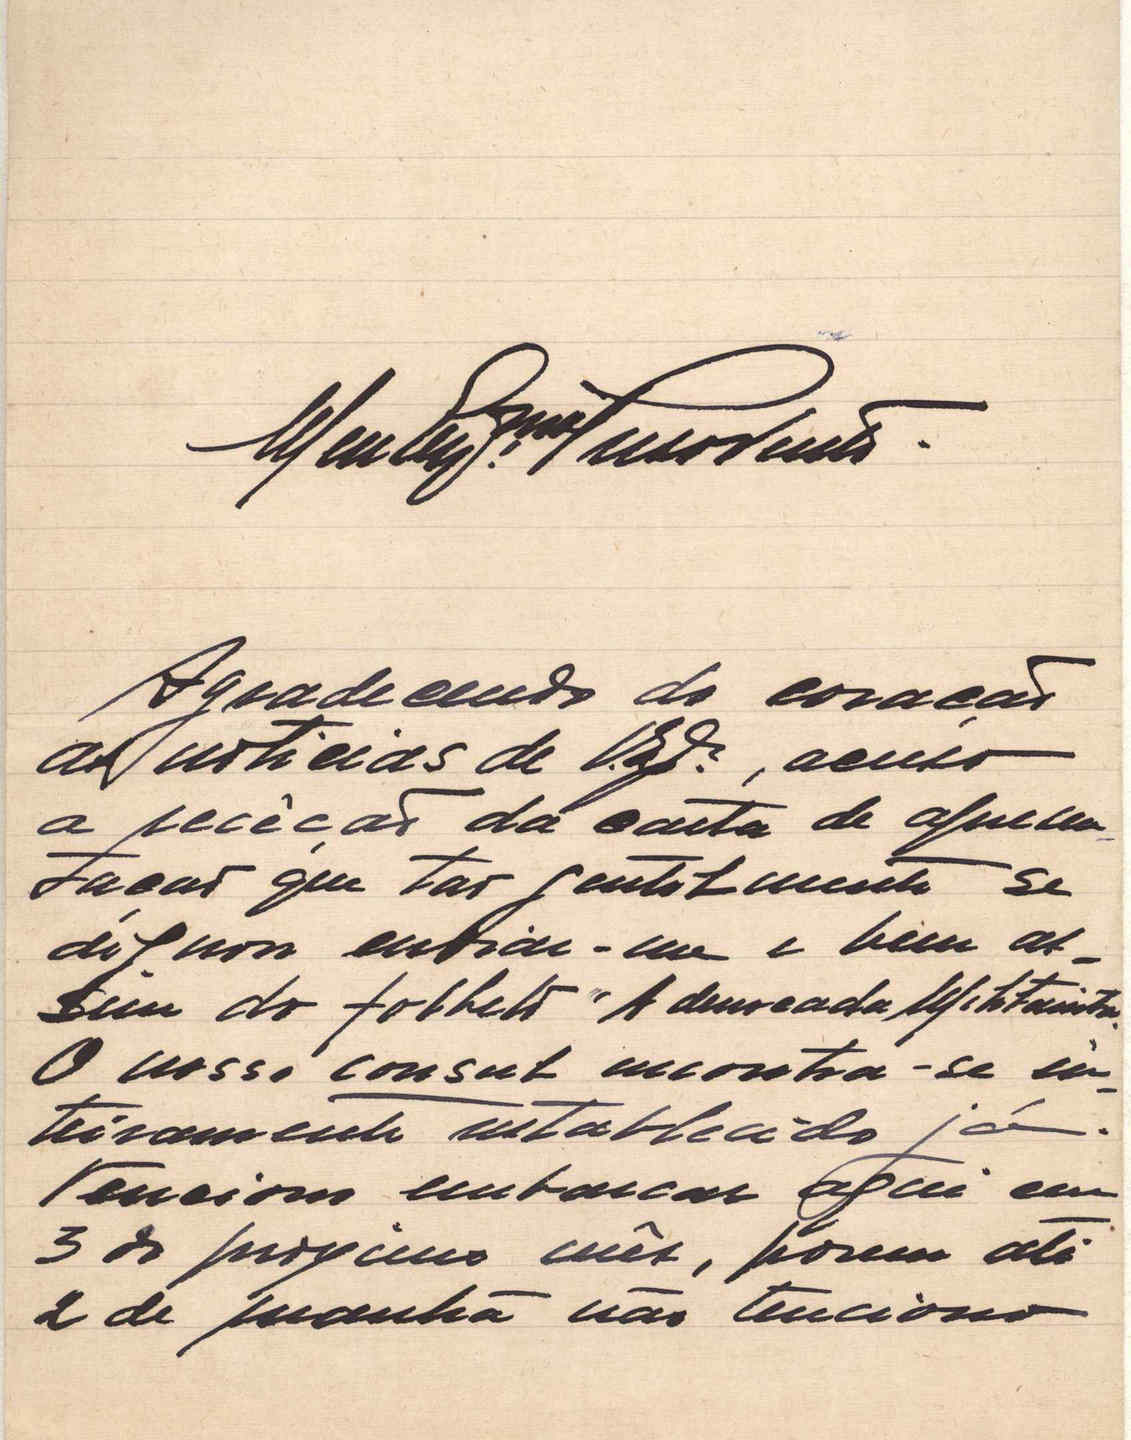 Meu Exmo Presidente.
Agradecendo do coração
as noticias de V. Exª., acuso
a recêção da carta de apresen-
tação que tão gentilmente se
dignou enviar-me e bem as-
sim do folheto "A democada
O nosso consul encontra-se in-
teiramente restablecido já.
Tenciono embarcar aqui em
3 do proximo mês, porem até
2 de manhã não tenciono